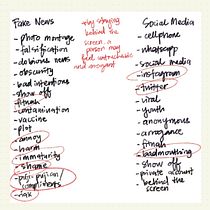 Fake News
- photo montage
- falsification
- dubious news
- obscurity
- bad intentions
- show off
- fitnah
- contamination
- vaccine
- plot
- annoy
- harm
- immaturity
- shame
- puji-pujian/
compliments
- risk
*by staying
behind the
screen, a
person may
feel untouchable
and arrogant
Social Media
- cellphone
- whatsapp
- social media
- instagram
- twitter
- viral
- youth
- anonymous
- arrogance
- fitnah
- badmouthing
- show off
- private account
- behind the
screen